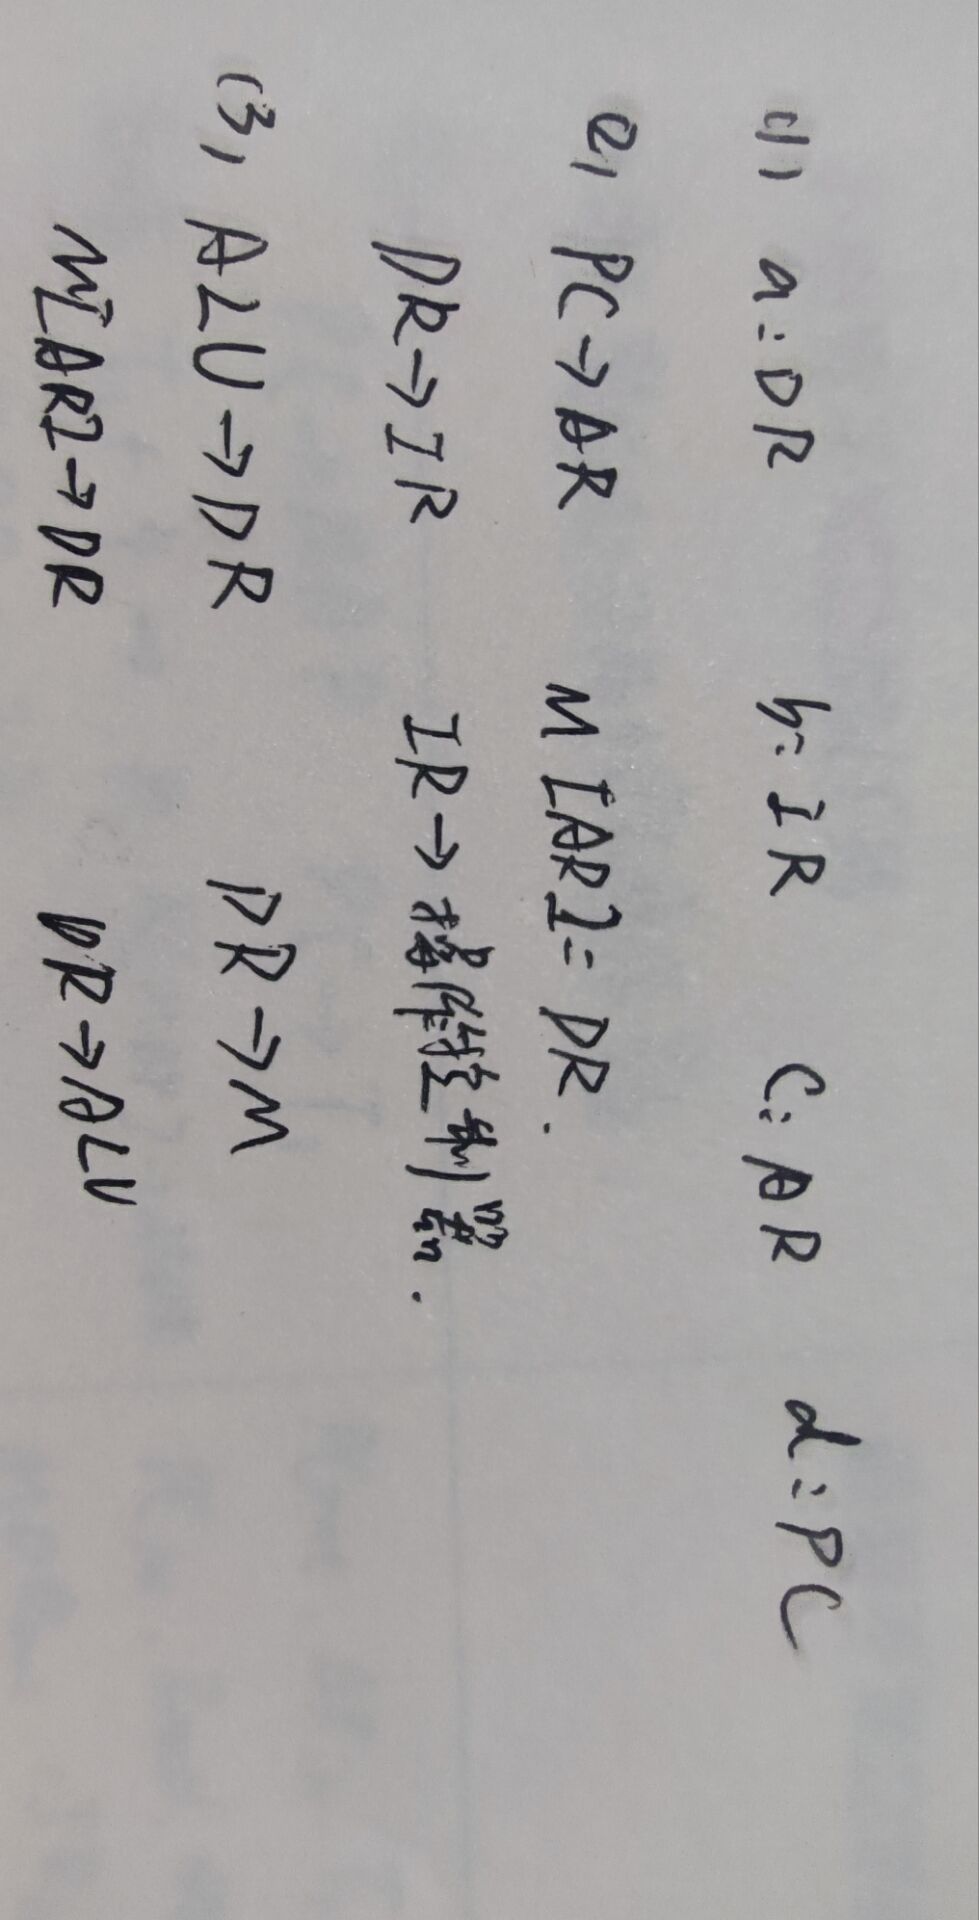 (1) a:DR b:IR C:AR d:PC
(2) PC→AR M[AR]=DR.
DR→IR IR→操作控制器.
(3) ALU→DR DR→M
M[AR]→DR DR→ALU